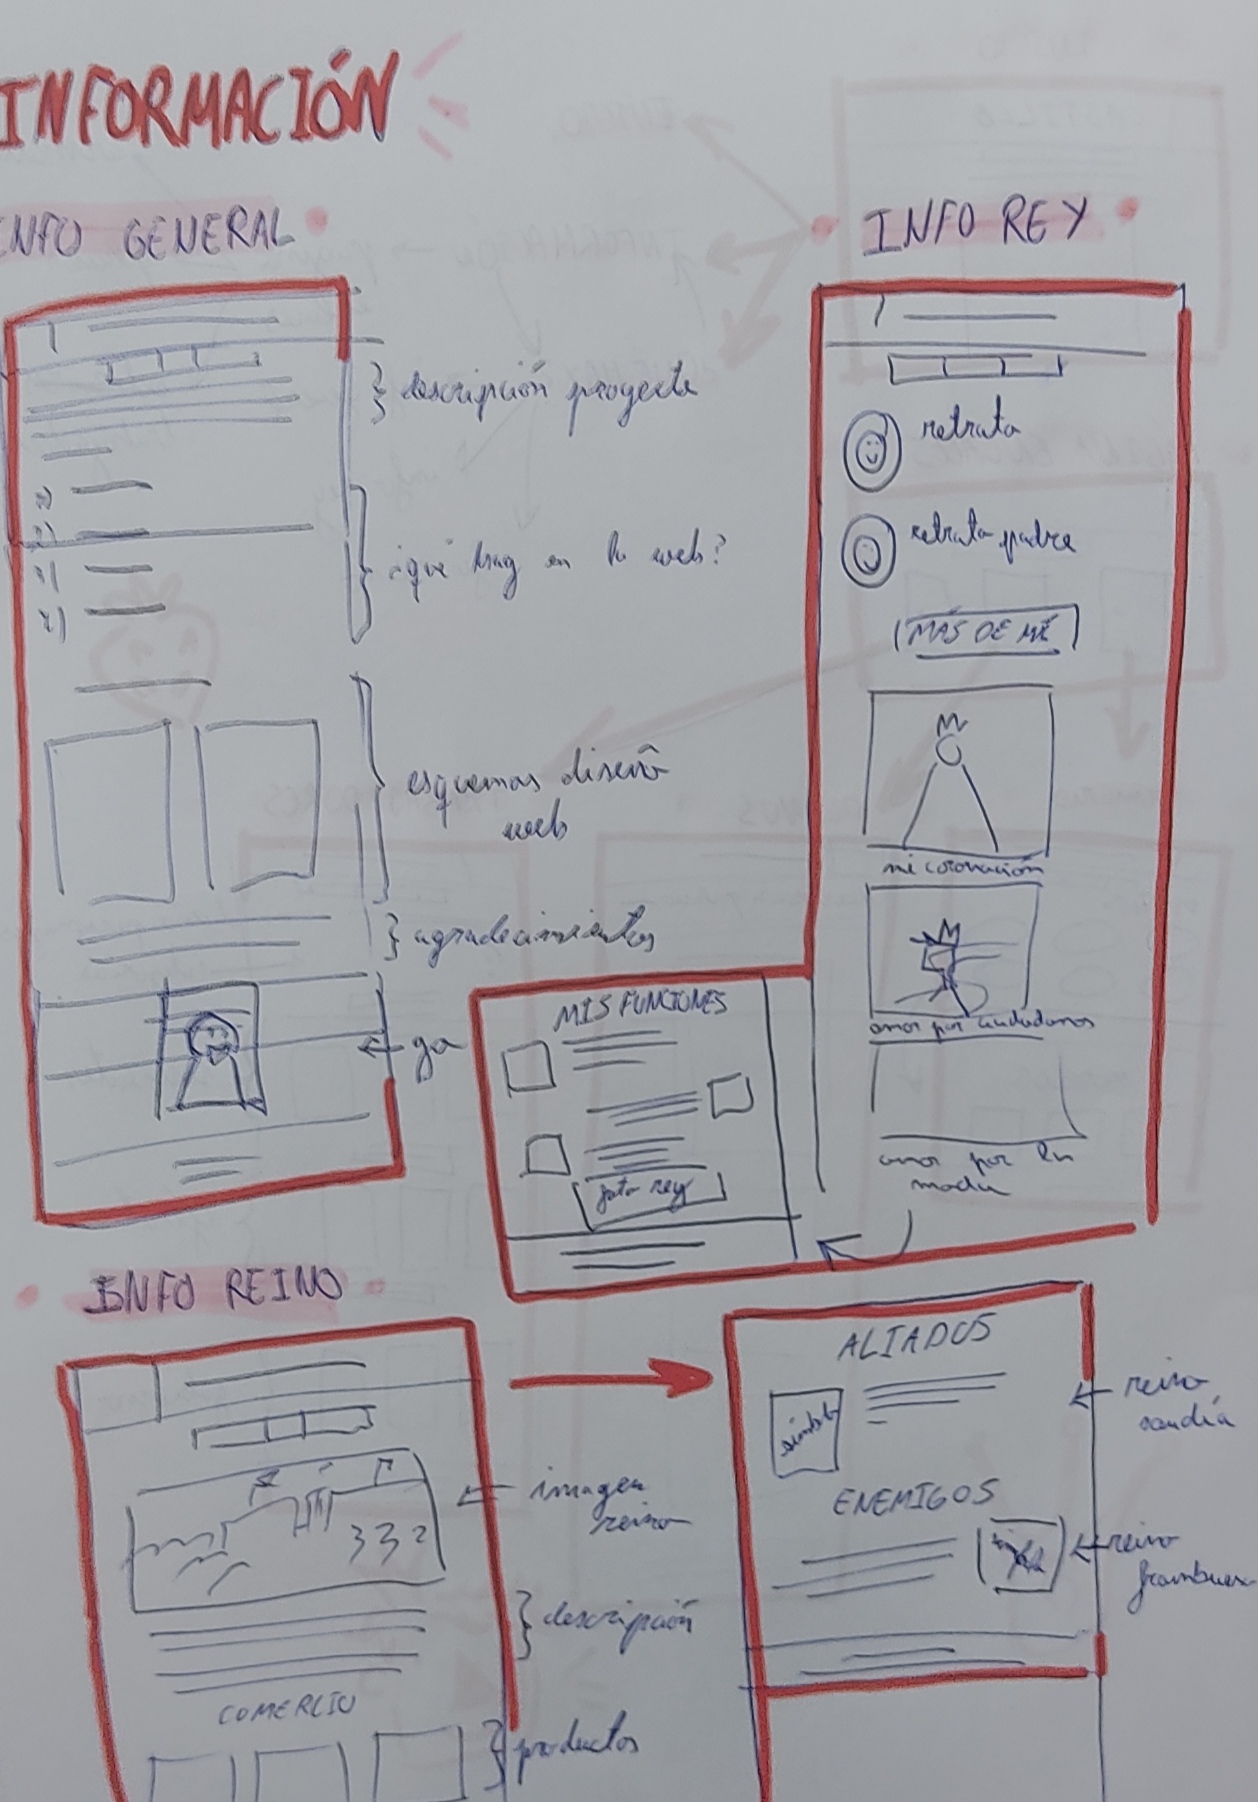 INFORMACIÓN
INFO GENERAL
descripción proyecto
1)
2)
3)
4)
¿qué hay en la web?
esquemas diseño
web
agradecimientos
← yo
INFO REY
retrato
retrato padre
MÁS DE MÍ
mi coronación
amor por ciudadanos
amor por la
moda
MIS FUNCIONES
foto rey
INFO REINO
imagen
reino
descripción
COMERCIO
productos
ALIADOS
símbolo
reino
sandía
ENEMIGOS
reino
frambuesa